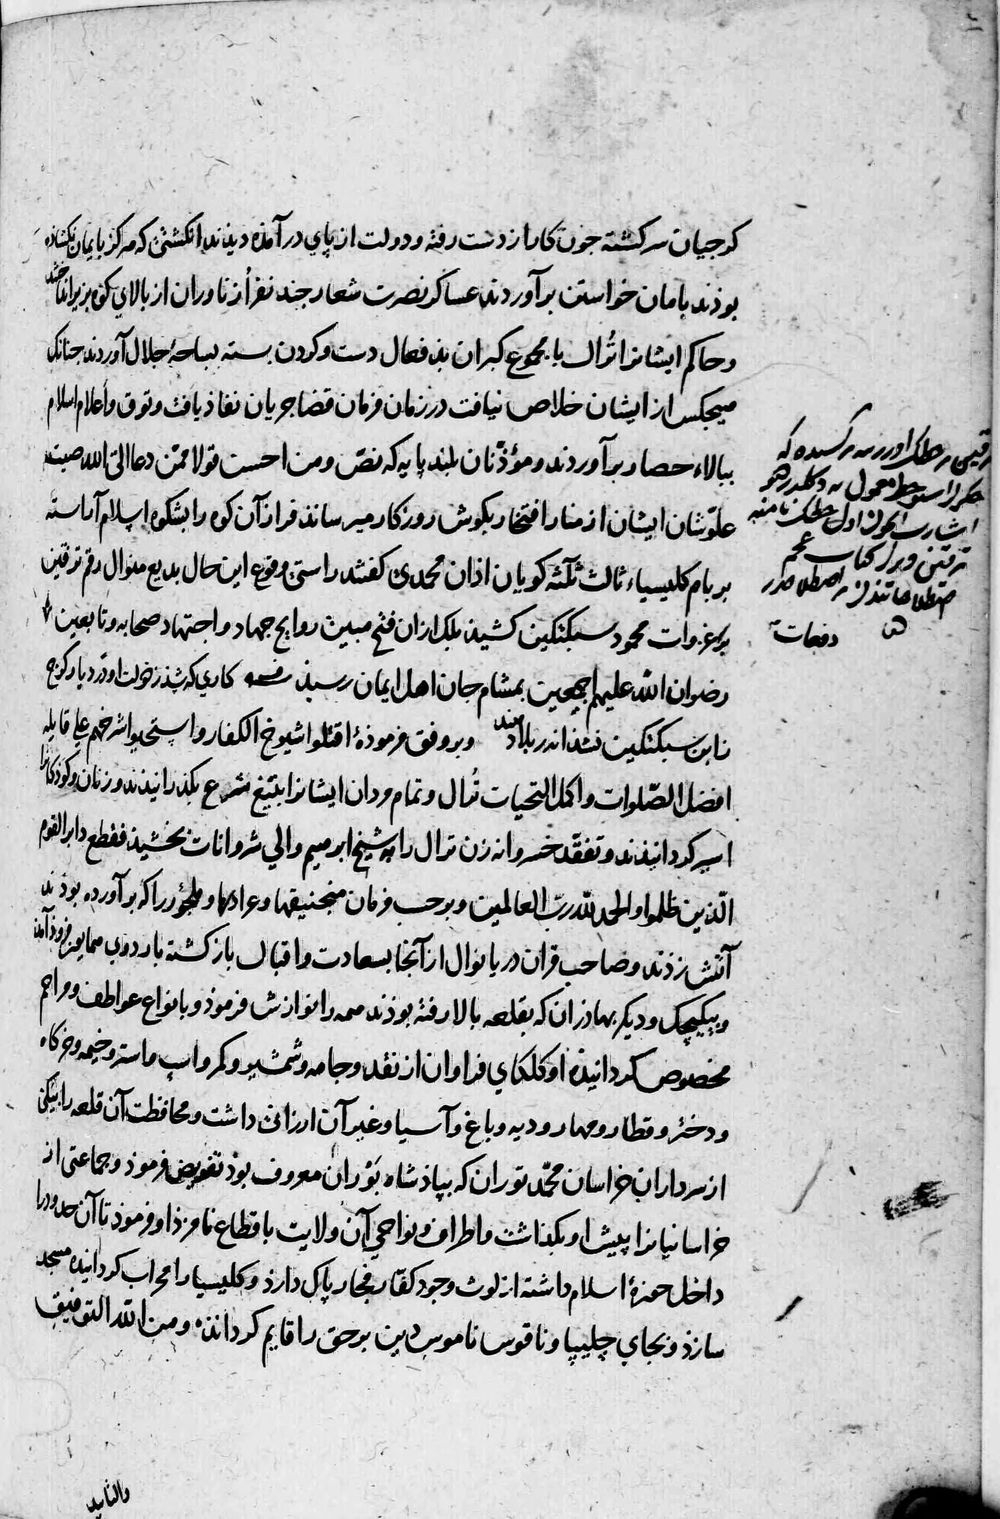 کرجیان سرکشته جون کار از دست رفته و دولت از پای درآمده دیدند انکشتی که هرکز بایمان نکشاده
بوذند بامان خواستن برآوردند عساکر نصرت شعار جند نفر از ناوران از بالای کوه بزیر انداختند
وحاکم ایشانرا تُرال با مجموع کبران بد فعال دست و کردن بسته بساحهٔ جلال آوردند جنانک
هیچکس از ایشان خلاص نیافت در زمان فرمان قضا جریان نفاذ یافت وتوق وأعلام اسلام
ببالاء حصار برآوردند ومؤذّنان بلند پایه که نصّ ومن احسن قولا ممّن دعا الی الله صیت
علوّشان ایشان از منار افتخار بکوش روزکار میرساند فراز آن کوه را بشکوه اسلام آراسته
بر بام کلیسیاء ثالث ثلثه کویان اذان محمدی کفتند راستی وقوع این حال بدیع منوال رقم ترقین
بر غزوات محمود سبکتکین کشید بلک ازان فتح مبین روایح جهاد واجتهاد صحابه وتابعین
رضوان الله علیهم اجمعین بمشام جان اهل ایمان رسید کاری که شد ز دولت او در دیار کرج
زابن سبکتکین نشد اندر بلاد هند وبر وفق فرمودهٔ اقتلوا شیوخ الکفار واستحیوا شرخهم علی قایله
افضل الصّلوات واکمل التحیات تُرال وتمام مردان ایشانرا بتیغ شرع بکذرانیدند وزنان وکوذکانرا
اسیر کردانیدند وتفقّد خسروانه زن ترال را بشیخ ابرهیم والی شروانات بخشید فقطع دابر القوم
الّذین ظلموا والحمد لله ربّ العالمین وبرحسب فرمان منجنیقها وعرادها وملجور را که برآورده بوذند
آتش زدند وصاحب قران دریا نوال از آنجا بسعادت واقبال بازکشته باردوی همایون فرود آمد
وبیکیجک ودیکر بهادران که بقلعه بالا رفته بوذند همه را نوازش فرموذ وبانواع عواطف ومراحم
مخصوص کردانیده اوکلکای فراوان از نقد وجامه وشمشیر وکمر واسب واستر وخیمه وخرکاه
ودختر وقطار ومهار ودیه وباغ وآسیا وغیر آن ارزانی داشت ومحافظت آن قلعه را بیکی
از سرداران خراسان محمّد توران که بپادشاه بوران معروف بوذ تفویض فرموذ وجماعتی از
خراسانیانرا پیش او بکذاشت واطراف ونواحی آن ولایت باقطاع نامزد او فرموذ تا آن حدود را
داخل حوزهٔ اسلام داشته از لوث وجود کفّار فجار پاک دارذ وکلیسیا را محراب کردانیده مسجد
سازذ وبجای چلیپا وناقوس ناموس دین برحق را قایم کرداند ومن الله التوفیق
والتایید